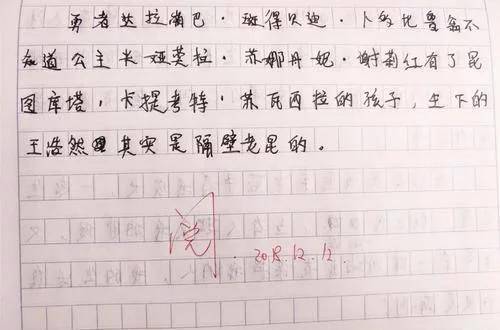 勇者达拉崩巴·斑得贝迪·卜多比鲁翁不
知道公主米娅莫拉·苏娜丹妮·谢莉红有了昆
图库塔·卡提考特·苏瓦西拉的孩子，生下的
王浩然其实是隔壁老昆的。
阅
2018.12.12.